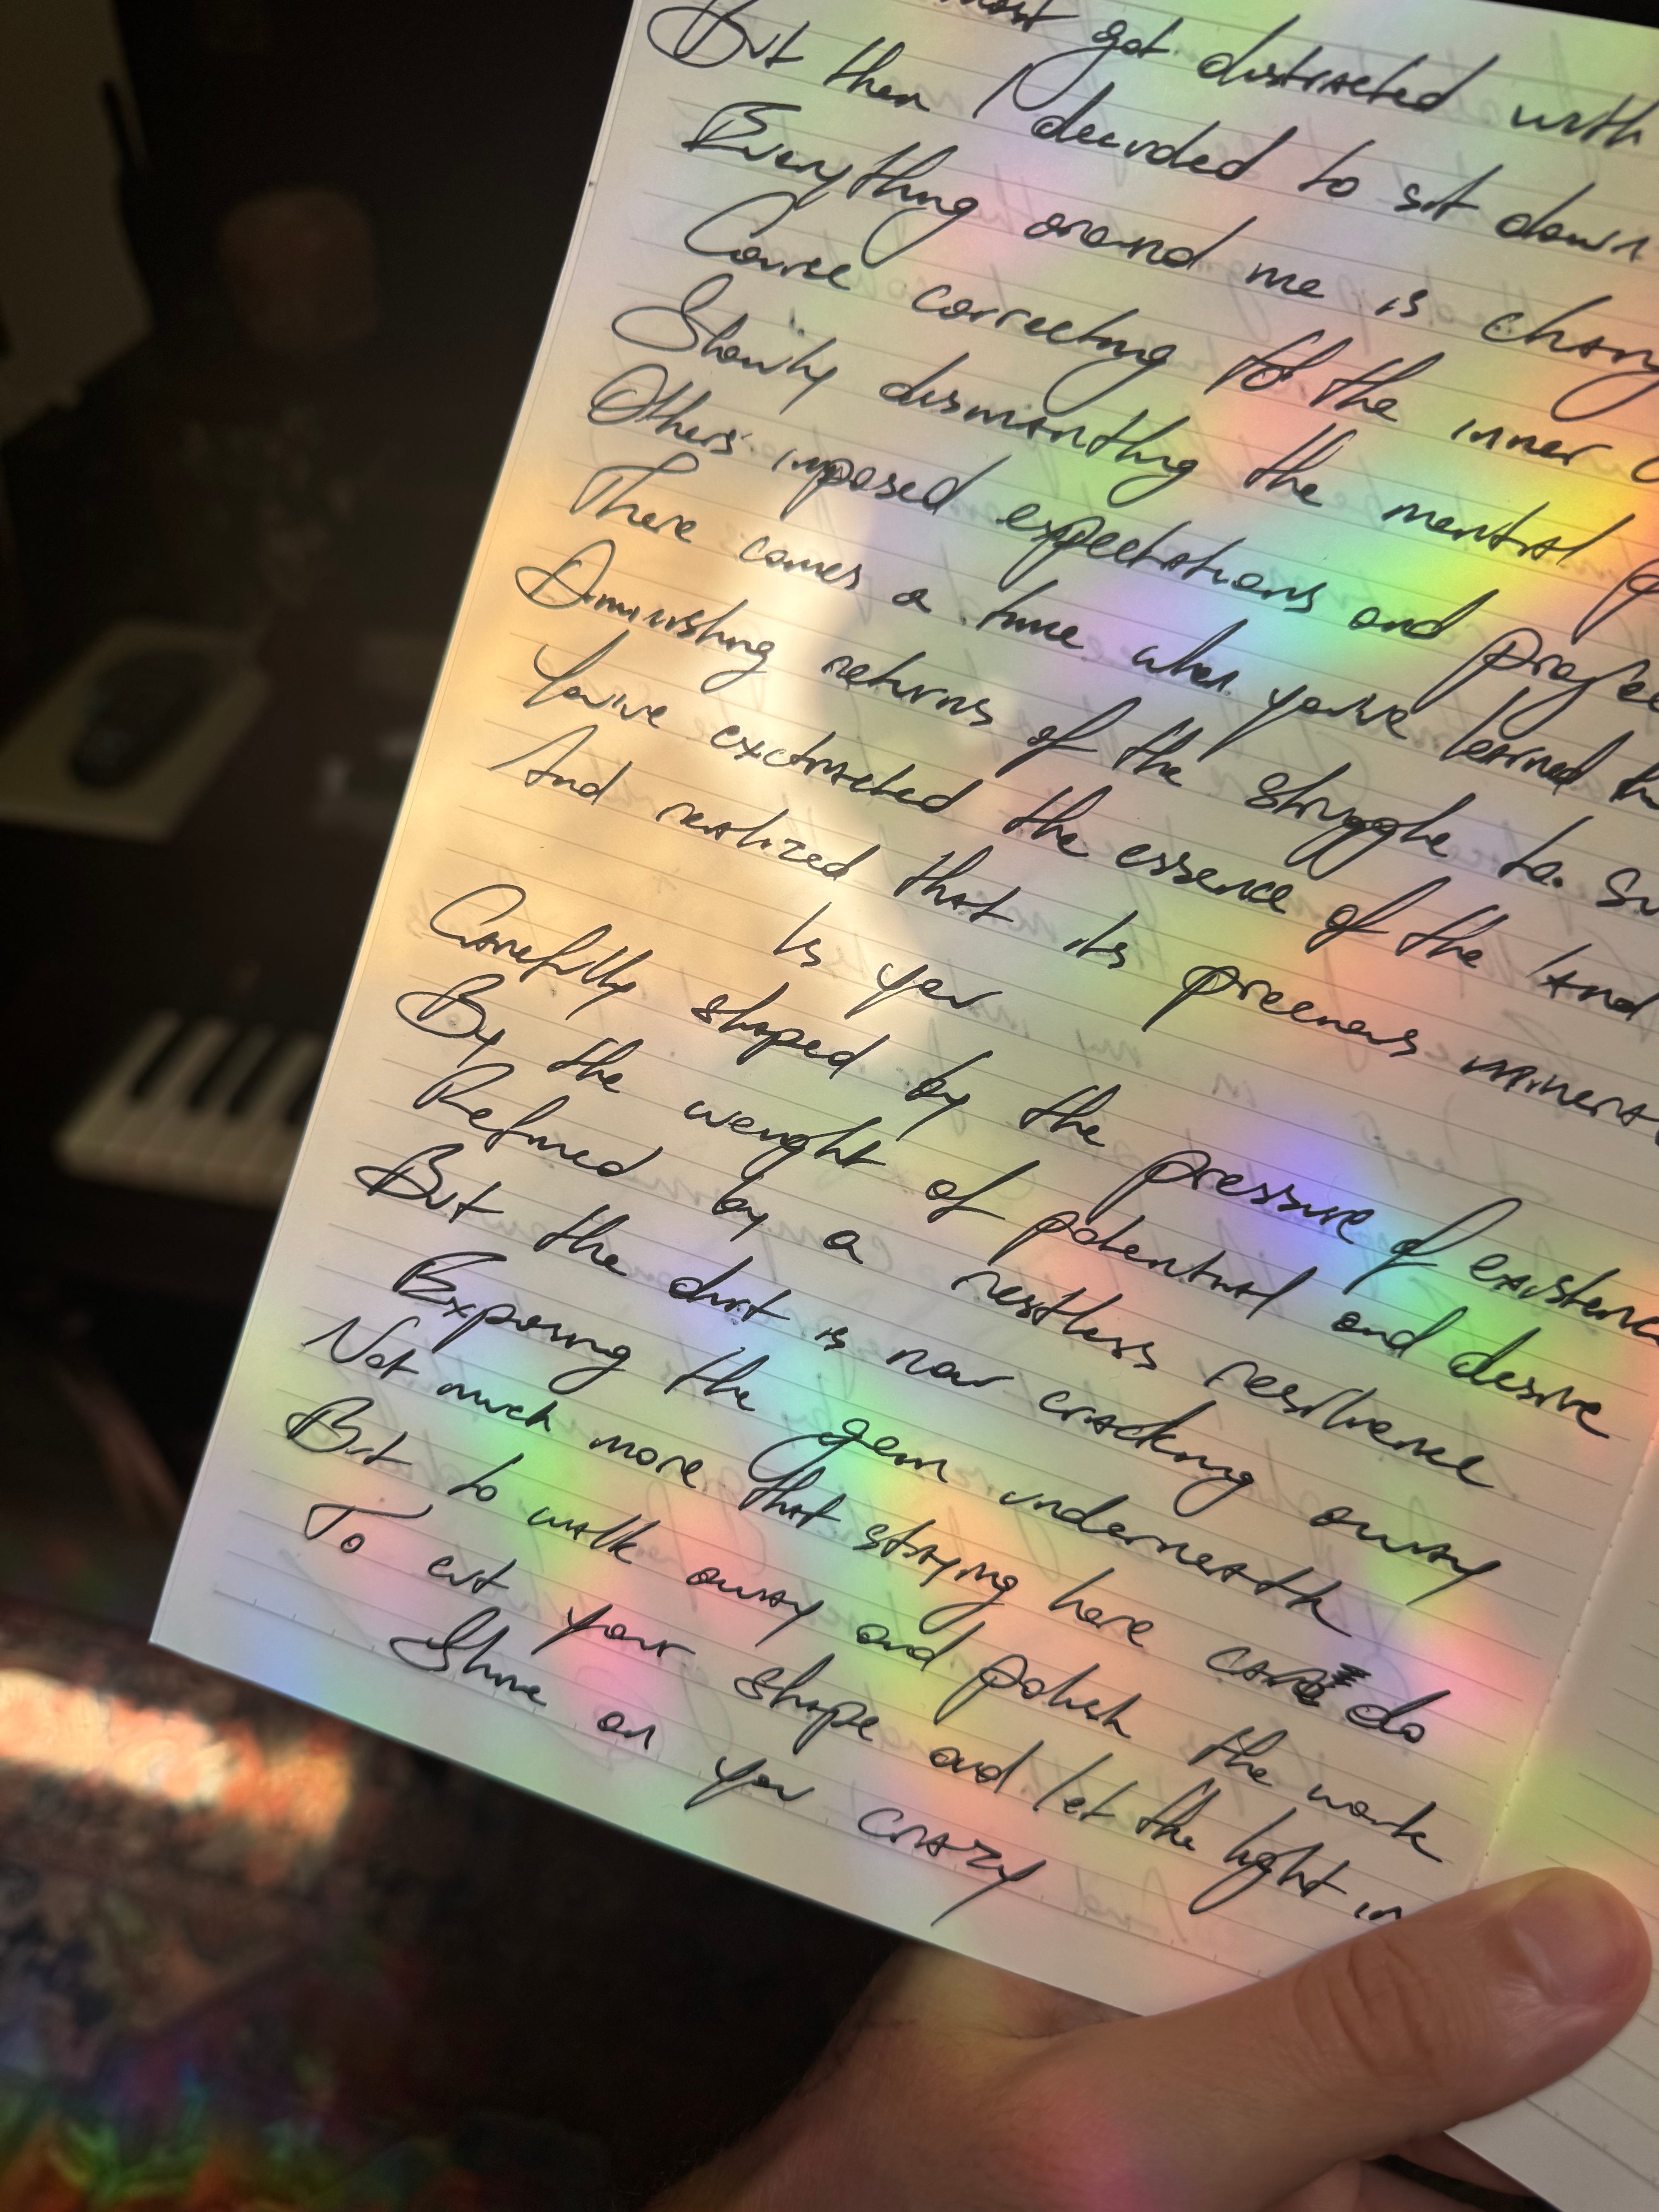 most got distracted with
But then I decided to sit down
Everything around me is chang
Course correcting to the inner
Slowly dismantling the mental
Others' imposed expectations and projec
There comes a time when you've learned th
Diminishing returns of the struggle to su
You've exctracted the essence of the land
And realized that its preenous minera
Is you
Carefully shaped by the pressure of existence
By the weight of potential and desire
Refined by a restless resilience
But the dirt is now cracking away
Exposing the gem underneath
Not much more that staying here can do
But to walk away and polish the work
To cut your shape and let the light in
Shine on you crazy